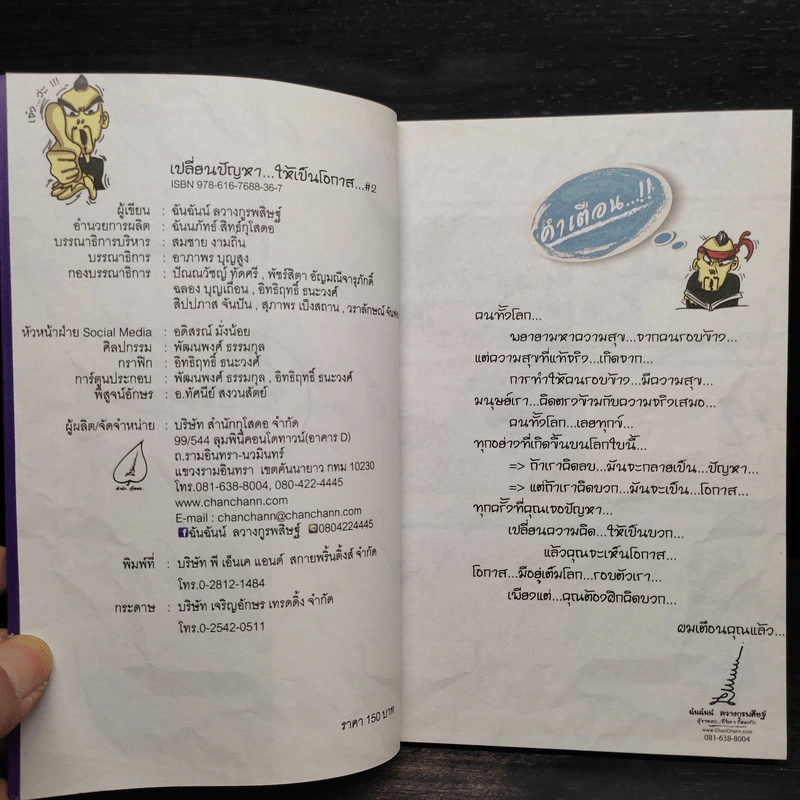 เจ๋ง...ว่ะ !!!
เปลี่ยนปัญหา...ให้เป็นโอกาส...#2
ISBN 978-616-7688-36-7
ผู้เขียน : ฉันฉันน์ ลวางกูรพสิษฐ์
อำนวยการผลิต : ฉันนภัทธ์ สิทธ์กุโสดอ
บรรณาธิการบริหาร : สมชาย งามถิน
บรรณาธิการ : อาภาพร บุญสูง
กองบรรณาธิการ : ปัณณวัชญ์ ทัดศรี , พัชร์สิตา อัญมณีจารุภักดิ์
ฉลอง บุญเถื่อน , อิทธิฤทธิ์ ธนะวงศ์
สิปปภาส จันปัน , สุภาพร เป็งสถาน , วราลักษณ์
หัวหน้าฝ่าย Social Media : อดิสรณ์ มั่งน้อย
ศิลปกรรม : พัฒนพงศ์ ธรรมกุล
กราฟิก : อิทธิฤทธิ์ ธนะวงศ์
การ์ตูนประกอบ : พัฒนพงศ์ ธรรมกุล , อิทธิฤทธิ์ ธนะวงศ์
พิสูจน์อักษร : อ.ทัศนีย์ สงวนสัตย์
ผู้ผลิต/จัดจำหน่าย : บริษัท สำนักกุโสดอ จำกัด
99/544 ลุมพินีคอนโดทาวน์(อาคาร D)
ถ.รามอินทรา-นวมินทร์
แขวงรามอินทรา เขตคันนายาว กทม 10230
โทร.081-638-8004, 080-422-4445
www.chanchann.com
E-mail : chanchann@chanchann.com
ฉันฉันน์ ลวางกูรพสิษฐ์ 0804224445
พิมพ์ที่ : บริษัท พี เอ็นเค แอนด์ สกายพริ้นติ้งส์ จำกัด
โทร.0-2812-1484
กระดาษ : บริษัท เจริญอักษร เทรดดิ้ง จำกัด
โทร.0-2542-0511
ราคา 150 บาท
คำเตือน...!!
คนทั้งโลก...
พยายามหาความสุข...จากคนรอบข้าง...
แต่ความสุขที่แท้จริง...เกิดจาก...
การทำให้คนรอบข้าง...มีความสุข...
มนุษย์เรา...คิดตรงข้ามกับความจริงเสมอ...
คนทั้งโลก...เลยทุกข์...
ทุกอย่างที่เกิดขึ้นบนโลกใบนี้...
=> ถ้าเราคิดลบ...มันจะกลายเป็น...ปัญหา...
=> แต่ถ้าเราคิดบวก...มันจะเป็น...โอกาส...
ทุกครั้งที่คุณเจอปัญหา...
เปลี่ยนความคิด...ให้เป็นบวก...
แล้วคุณจะเห็นโอกาส...
โอกาส...มีอยู่เต็มโลก...รอบตัวเรา...
เพียงแต่...คุณต้องฝึกคิดบวก...
ผมเตือนคุณแล้ว...
ฉันฉันน์ ลวางกูรพสิษฐ์
www.ChanChann.com
081-638-8004